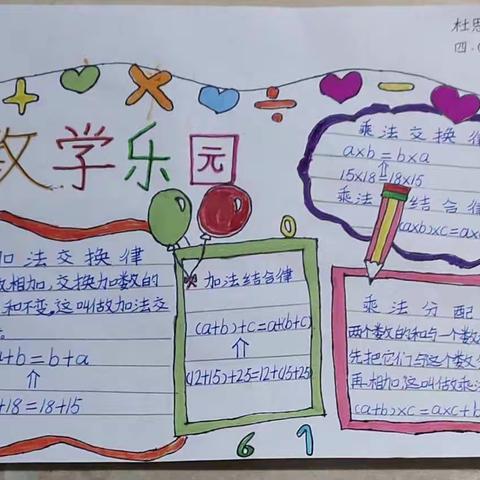 杜思
四.(
数学乐园
加法交换律
数相加,交换加数的
和不变。这叫做加法交
a+b=b+a
+18=18+15
加法结合律
(a+b)+c=a+(b+c)
(12+15)+25=12+(15+25)
乘法交换律
a×b=b×a
15×18=18×15
乘法结合律
(a×b)×c=a×
乘法分配
两个数的和与一个数
先把它们与这个数分
再相加,这叫做乘法
(a+b)×c=a×c+b
0
6
1